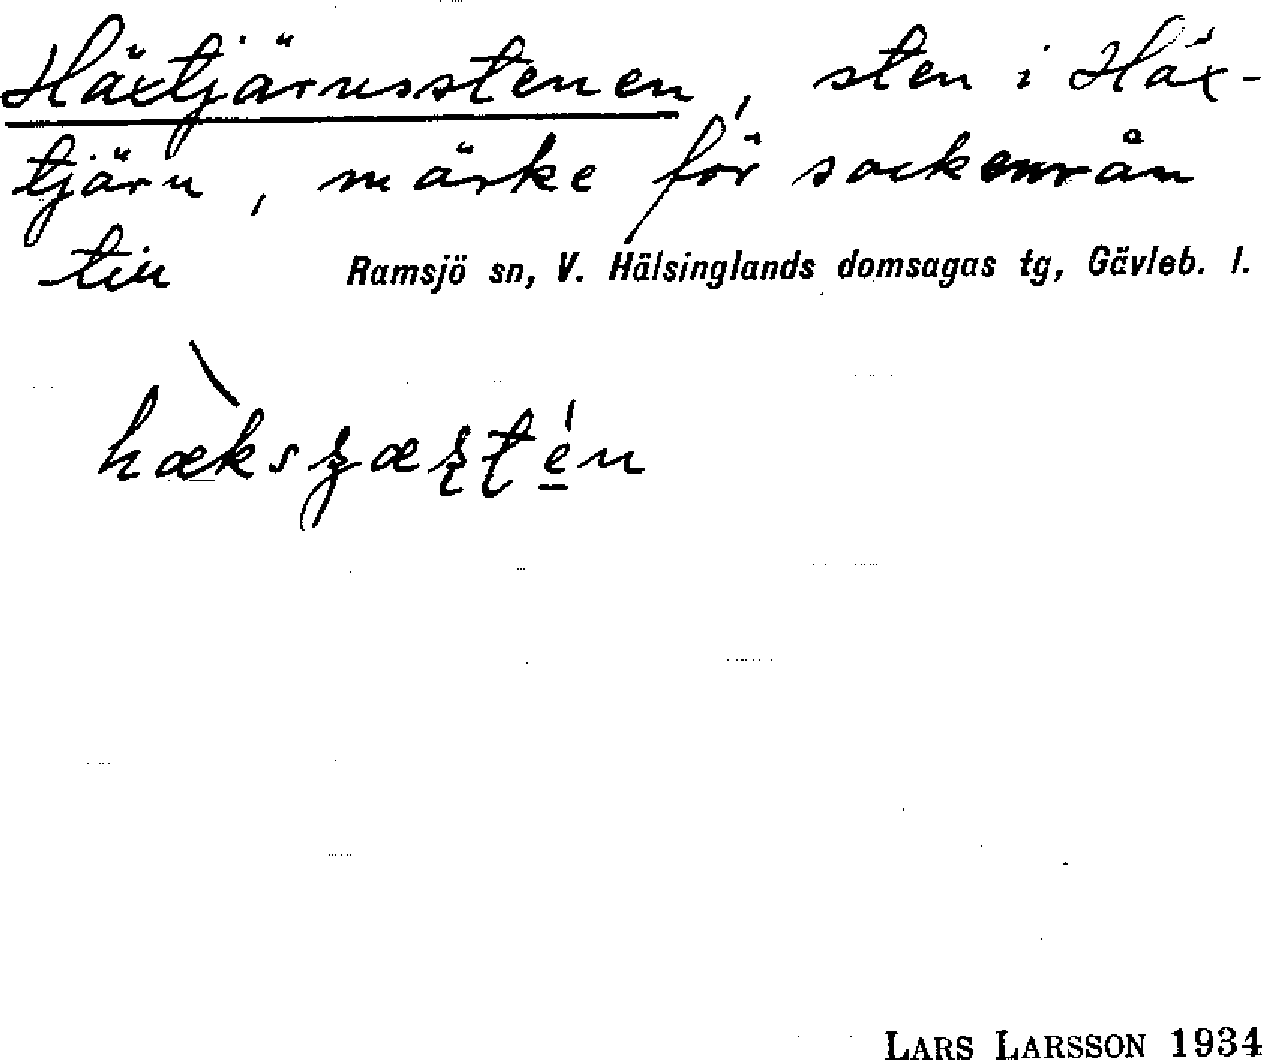 Häxtjärnsstenen, sten i Häx-
tjärn, märke för sockenrån
till
Ramsjö sn, V. Hälsinglands domsagas tg, Gävleb. l.
LARS LARSSON 1934